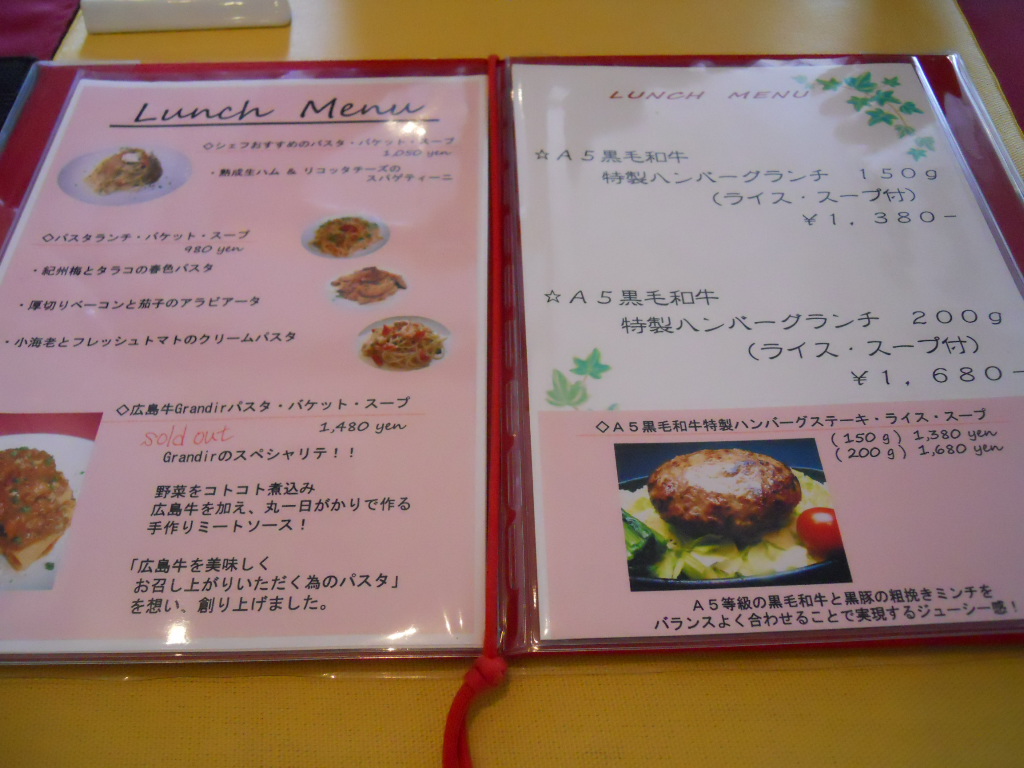 Lunch Menu
◇シェフおすすめのパスタ・バケット・スープ
1,050 yen
・熟成生ハム & リコッタチーズの
スパゲティーニ
◇パスタランチ・バケット・スープ
980 yen
・紀州梅とタラコの春色パスタ
・厚切りベーコンと茄子のアラビアータ
・小海老とフレッシュトマトのクリームパスタ
◇広島牛Grandirパスタ・バケット・スープ
sold out
1,480 yen
Grandirのスペシャリテ！！
野菜をコトコト煮込み
広島牛を加え、丸一日がかりで作る
手作りミートソース！
「広島牛を美味しく
お召し上がりいただく為のパスタ」
を想い、創り上げました。
LUNCH MENU
☆Ａ５黒毛和牛
特製ハンバーグランチ　１５０ｇ
（ライス・スープ付）
￥１，３８０－
☆Ａ５黒毛和牛
特製ハンバーグランチ　２００ｇ
（ライス・スープ付）
￥１，６８０－
◇Ａ５黒毛和牛特製ハンバーグステーキ・ライス・スープ
(150g) 1,380 yen
(200g) 1,680 yen
Ａ５等級の黒毛和牛と黒豚の粗挽きミンチを
バランスよく合わせることで実現するジューシー感！